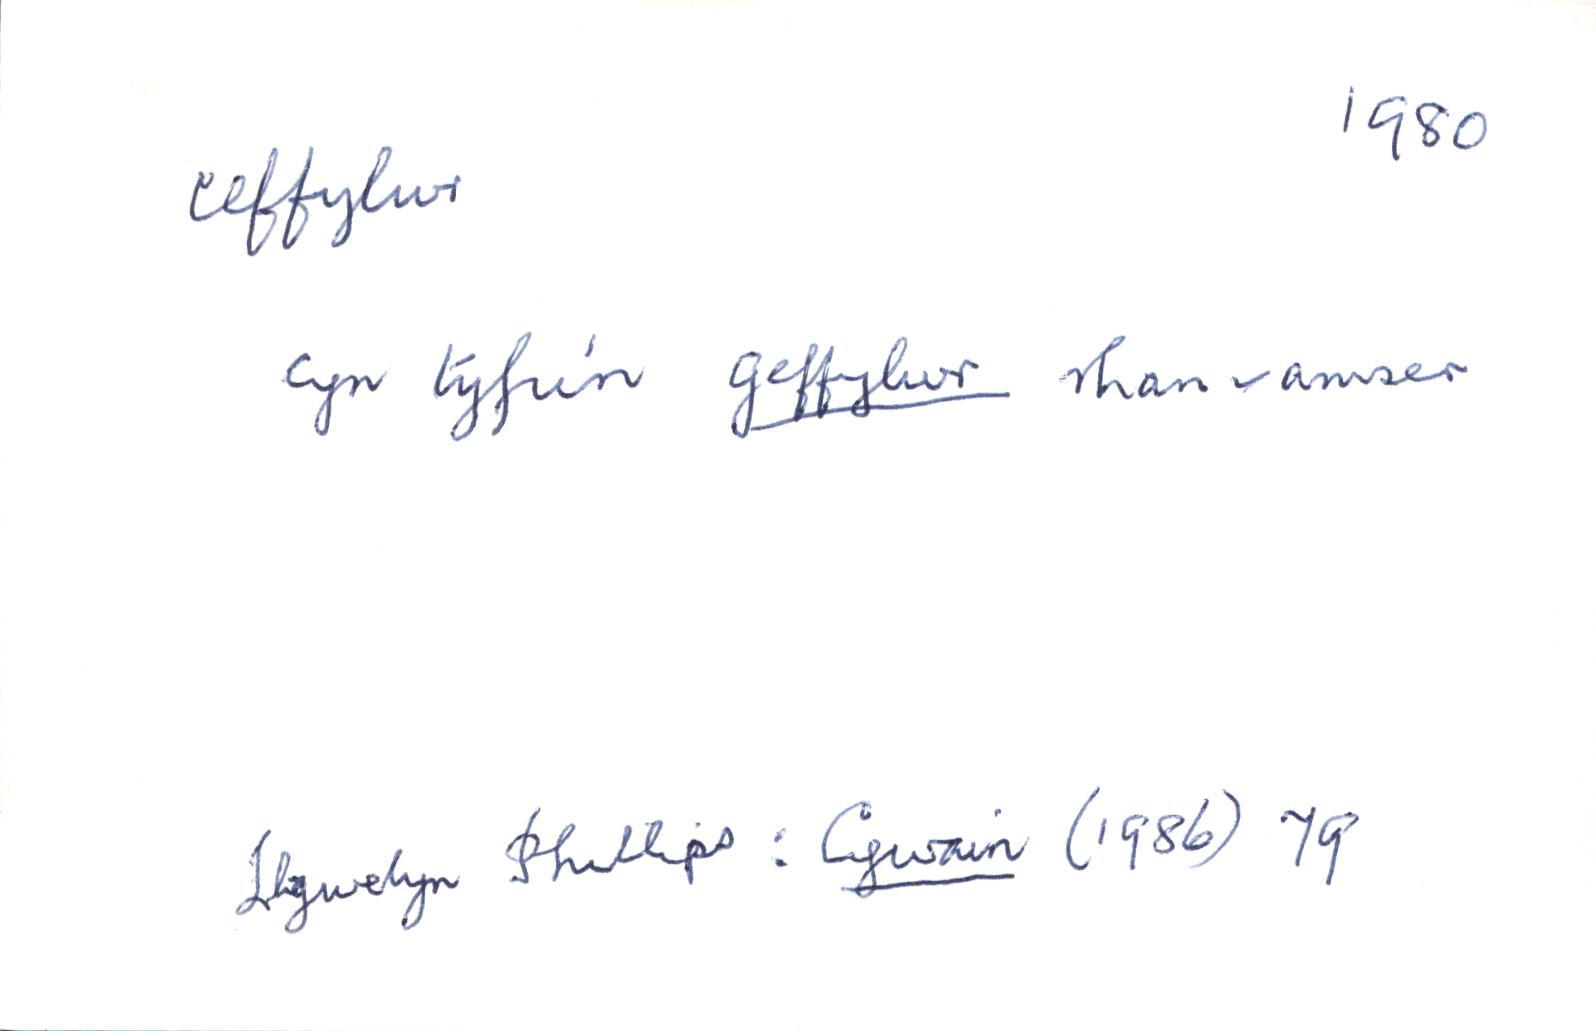 1980
ceffylwr
cyn tyfu'n geffylwr rhan-amser
Llywelyn Phillips : Cywain (1986) 79